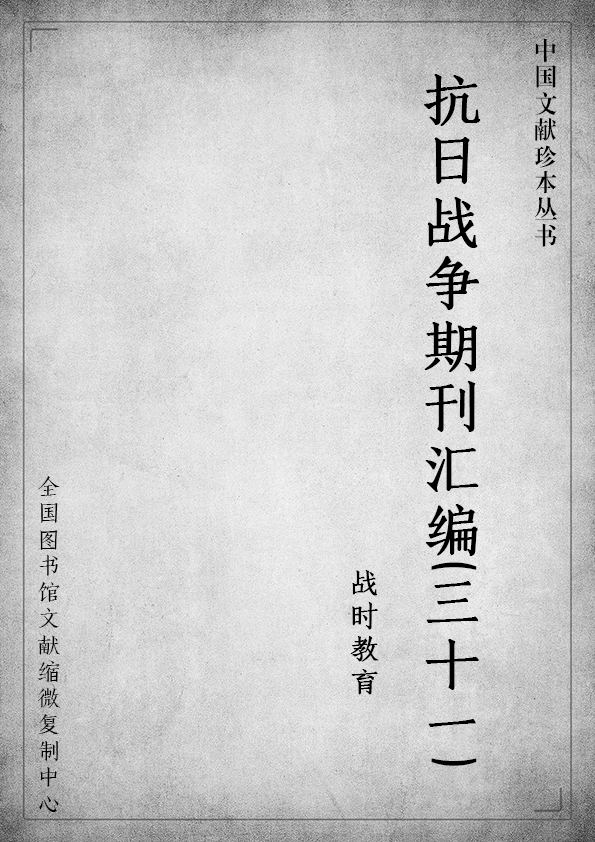 中国文献珍本丛书
抗日战争期刊汇编(三十一)
战时教育
全国图书馆文献缩微复制中心